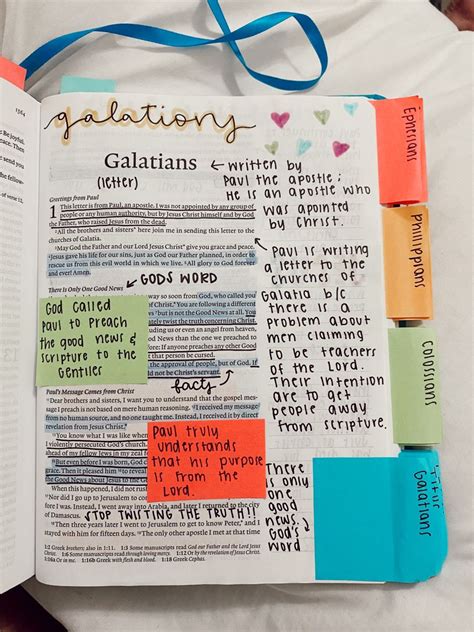 galations
Galatians
(letter)
← written by
Paul the apostle;
He is an apostle who
was apointed
by Christ.
Greetings from Paul
1 This letter is from Paul, an apostle. I was not appointed by any group of
people or any human authority, but by Jesus Christ himself and by God
the Father, who raised Jesus from the dead.
2 All the brothers and sisters here join me in sending this letter to the
churches of Galatia.
3 May God the Father and our Lord Jesus Christ give you grace and peace.
4 Jesus gave his life for our sins, just as God our Father planned, in order to
rescue us from this evil world in which we live. 5 All glory to God forever
and ever! Amen.
Paul is writing
a letter to the
churches of
Galatia b/c
there is a
problem about
men claiming
to be teachers
of the Lord.
Their intention
are to get
people away
from scripture.
There Is Only One Good News
← GODS WORD
so soon from God, who called you
You are following a different
but is not the Good News at all.
twist the truth concerning Christ.
including us or even an angel from heaven,
Good News than the one we preached to
before: If anyone preaches any other Good
that person be cursed.
the approval of people, but of God. If
not be Christ's servant.
God called
Paul to preach
the good news &
scripture to the
Gentiles
facts
Paul's Message Comes from Christ
11 Dear brothers and sisters, I want you to understand that the gospel message
I preach is not based on mere human reasoning. 12 I received my message
from no human source, and no one taught me. Instead, I received it by direct
revelation from Jesus Christ.
13 You know what I was like when
I violently persecuted God's church.
ahead of my fellow Jews in my zeal for
15 But even before I was born, God
grace. Then it pleased him to reveal
the Good News about Jesus to the
When this happened, I did not rush
17 Nor did I go up to Jerusalem to
Paul truly
understands
that his purpose
is from the
Lord.
There
is only
one
good
news.
God's
word
I was. Instead, I went away into Arabia, and later I returned to the city
of Damascus.
STOP TWISTING THE TRUTH!!
18 Then three years later I went to Jerusalem to get to know Peter, and I
stayed with him for fifteen days. 19 The only other apostle I met at that time
1:2 Greek brothers; also in 1:11. 1:3 Some manuscripts read God our Father and the Lord Jesus
Christ. 1:6 Some manuscripts read through loving mercy. 1:12 Or by the revelation of Jesus Christ.
1:16b Greek with flesh and blood. 1:18 Greek Cephas.
Ephesians
Philippians
Colossians
Titus
Galatians